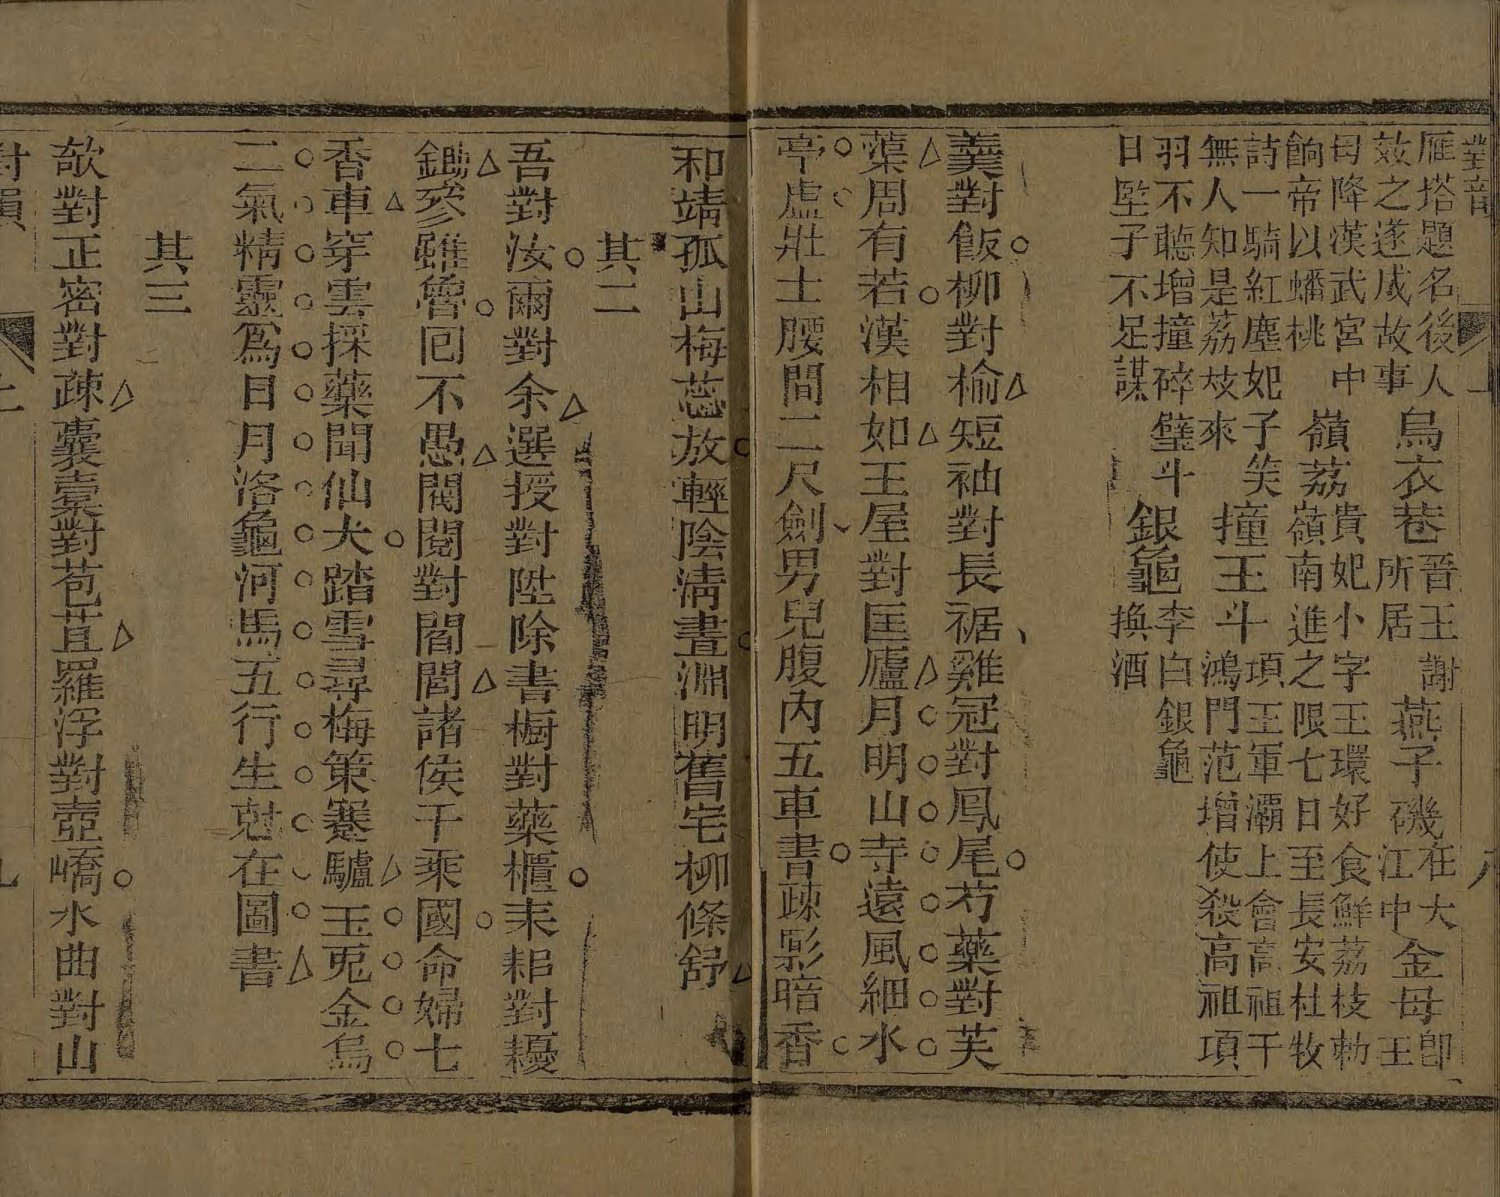 對
雁塔題名後人
效之遂成故事
烏衣巷
晉王謝
所居
燕子磯
在大
江中
金母
即
王
母降漢武宮中
餉帝以蟠桃
嶺荔
貴妃小字玉環好食鮮荔枝勅
嶺南進之限七日至長安杜牧
詩一騎紅塵妃子笑
無人知是荔枝來
撞玉斗
項王軍灞上會高祖干
鴻門范增使殺高祖項
羽不聽增撞碎璧斗
日竪子不足謀
銀龜
李白銀龜
換酒
羹對飯柳對榆短袖對長裾雞冠對鳳尾芍藥對芙
蕖周有若漢相如王屋對匡廬月明山寺遠風細水
亭虛壯士腰間三尺劍男兒腹內五車書疎影暗香
和靖孤山梅蕊放輕陰清晝淵明舊宅柳條舒
其二
吾對汝爾對余選授對陞除書櫥對藥櫃耒耜對耰
鋤參雖魯回不愚閥閱對閻閭諸侯千乘國命婦七
香車穿雲採藥聞仙犬踏雪尋梅策蹇驢玉兎金烏
二氣精靈爲日月洛龜河馬五行生尅在圖書
其三
欹對正密對疎囊橐對苞苴羅浮對壺嶠水曲對山
對韻
上
九